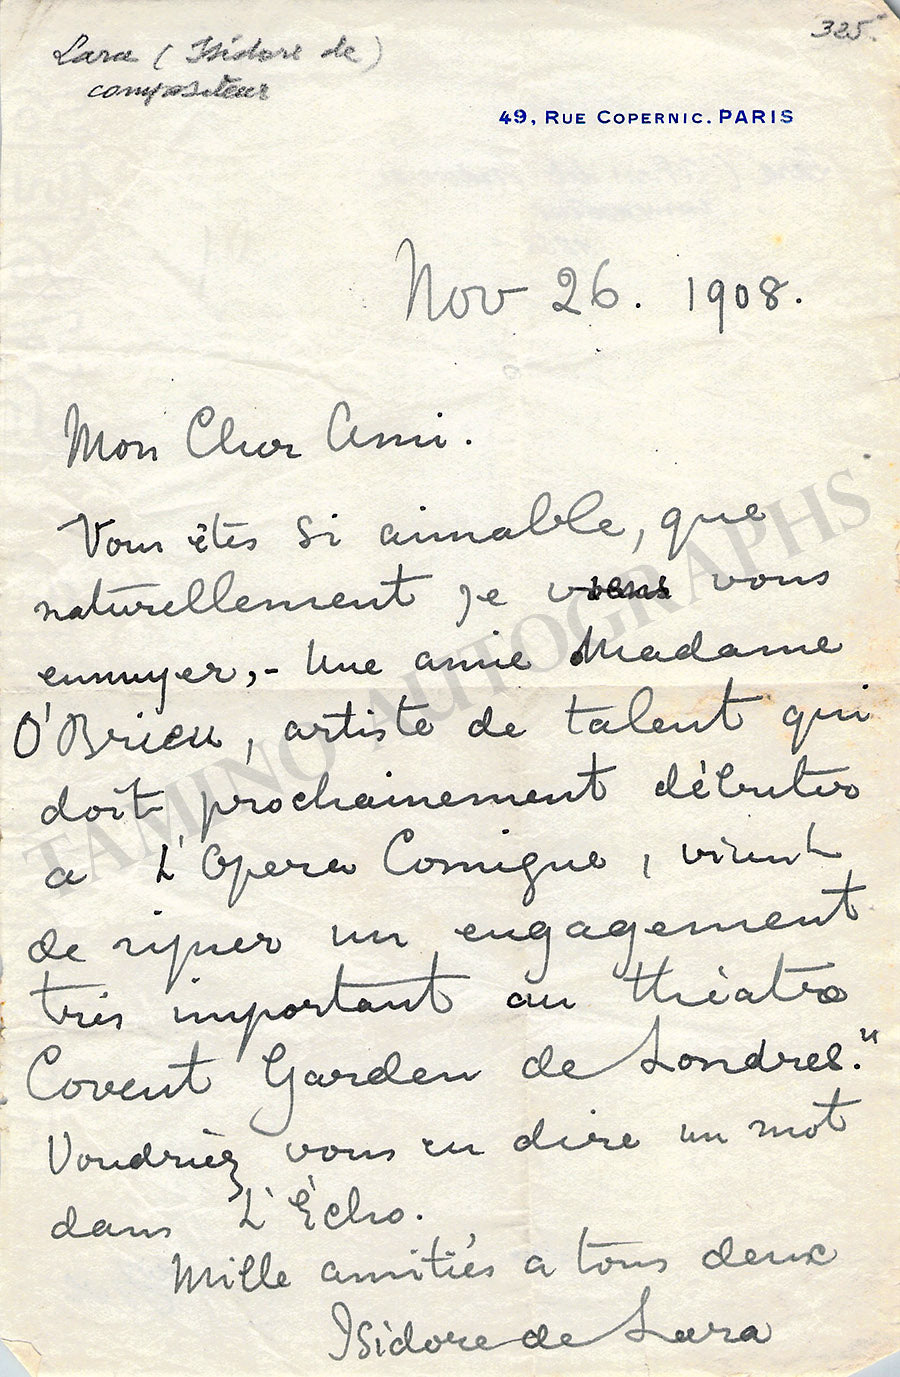 Lara (Isidore de)
compositeur
325.
49, Rue Copernic. PARIS
Nov 26. 1908.
Mon Cher Ami.
Vous êtes si aimable, que
naturellement je viens vous
ennuyer,- Une amie Madame
O'Brien, artiste de talent qui
doit prochainement débuter
a L'Opera Comique, vient
de signer un engagement
très important au théatre
Covent Garden de Londres."
Voudriez vous en dire un mot
dans L'Écho.
Mille amitiés a tous deux
Isidore de Lara
TAMINO AUTOGRAPHS